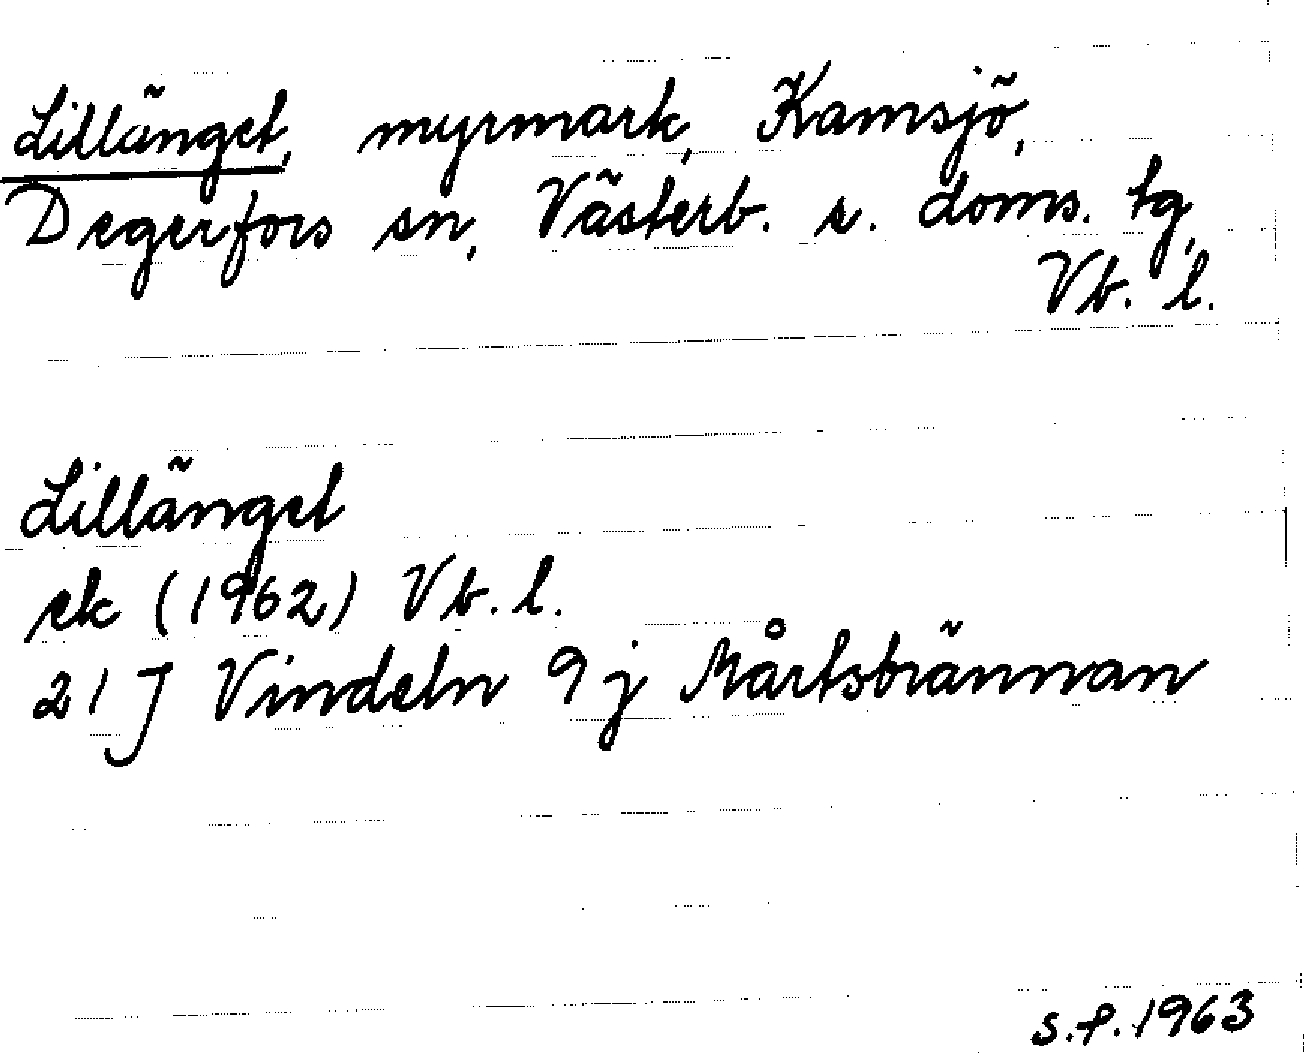 Lillänget, myrmark, Kamsjö,
Degerfors sn, Västerb. s. doms. tg,
Vb. l.
Lillänget
ek (1962) Vb. l.
21 J Vindeln 9 j Mårtsbrännan
s.f. 1963